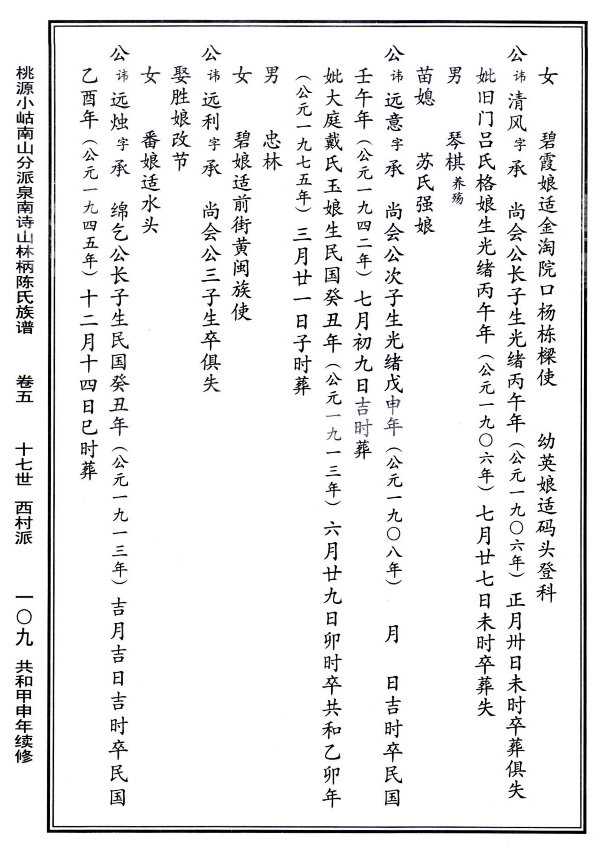 女　碧霞娘适金淘院口杨栋樑使　幼英娘适码头登科
公讳清风字承　尚会公长子生光绪丙午年（公元一九〇六年）正月卅日未时卒葬俱失
妣旧门吕氏格娘生光绪丙午年（公元一九〇六年）七月廿七日未时卒葬失
男　琴棋养殇
苗媳　苏氏强娘
公讳远意字承　尚会公次子生光绪戊申年（公元一九〇八年）　月　日吉时卒民国
壬午年（公元一九四二年）七月初九日吉时葬
妣大庭戴氏玉娘生民国癸丑年（公元一九一三年）六月廿九日卯时卒共和乙卯年
（公元一九七五年）三月廿一日子时葬
男　忠林
女　碧娘适前街黄闽族使
公讳远利字承　尚会公三子生卒俱失
娶胜娘改节
女　番娘适水头
公讳远烛字承　绵乞公长子生民国癸丑年（公元一九一三年）吉月吉日吉时卒民国
乙酉年（公元一九四五年）十二月十四日巳时葬
桃源小岵南山分派泉南诗山林柄陈氏族谱　卷五　十七世　西村派　一〇九　共和甲申年续修